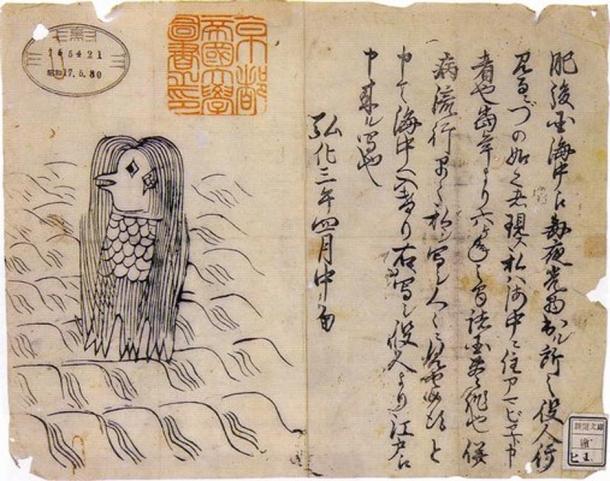 肥後国海中え毎夜光物出ル所之役人行
見るニづの如之者現ス私ハ海中ニ住アマビヱト申
者也当年より六ヶ年之間諸国豊作也併
病流行早々私シ写シ人々ニ見せ候得と
申て海中へ入けり右写シ役人より江戸え
申来ル写也
弘化三年四月中旬
京都
帝國大學
圖書之印
昭和17.5.30
新聞文庫